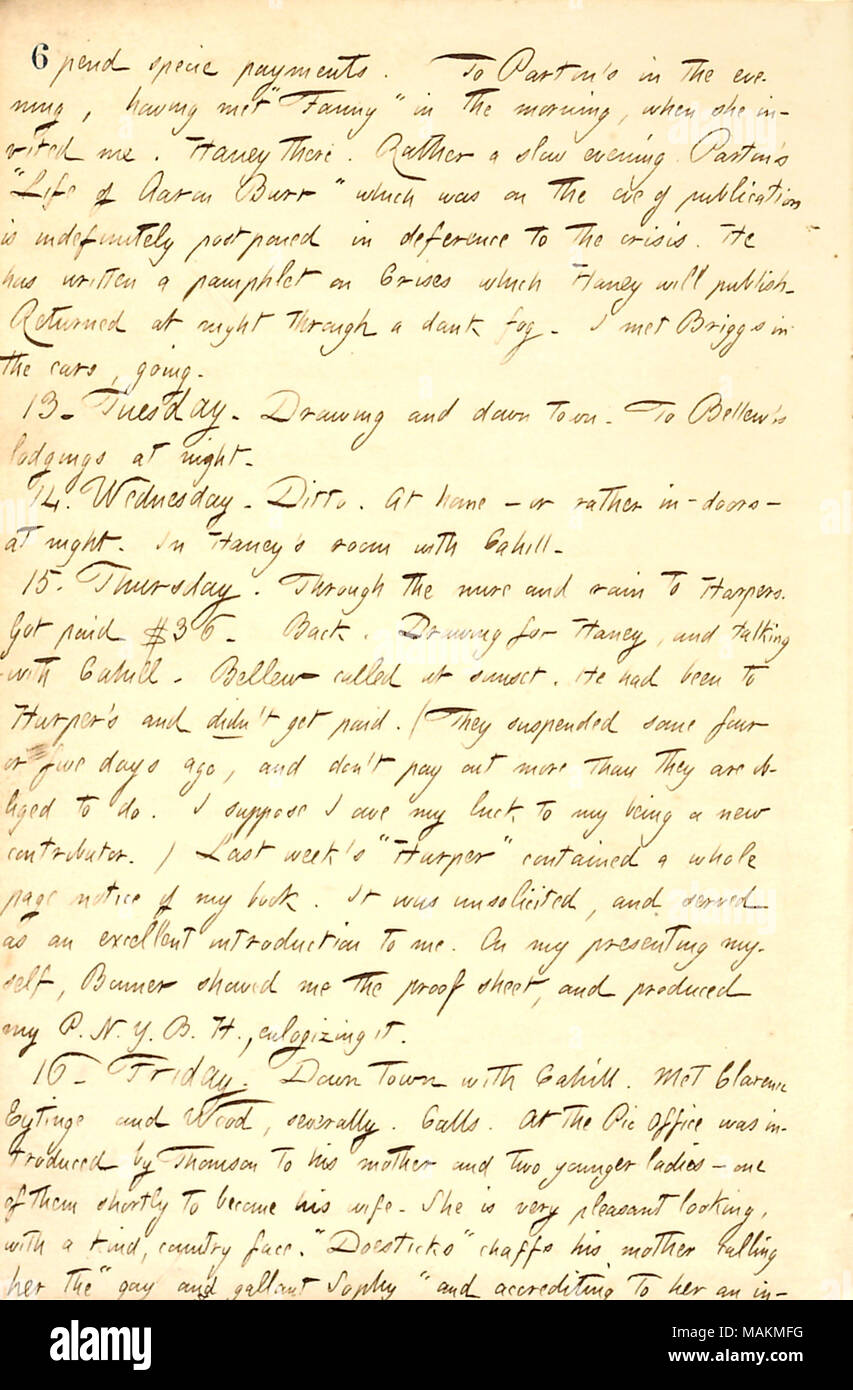 6 pend specie payments. To Parton's in the eve-
ning, having met "Fanny" in the morning, when she in-
vited me. Haney there. Rather a slow evening. Parton's
"Life of Aaron Burr" which was on the eve of publication
is indefinitely postponed in deference to the crisis. He
has written a pamphlet on Crises which Haney will publish.
Returned at night through a dank fog. I met Briggs in
the cars, going.
13. Tuesday. Drawing and down town. To Bellew's
lodgings at night.
14. Wednesday. Ditto. At home - or rather in-doors -
at night. In Haney's room with Cahill.
15. Thursday. Through the mire and rain to Harpers.
Got paid $36. Back. Drawing for Haney, and talking
with Cahill. Bellew called at sunset. He had been to
Harper's and didn't get paid. (They suspended some four
or five days ago, and don't pay out more than they are ob-
liged to do. I suppose I owe my luck to my being a new
contributor.) Last week's "Harper" contained a whole
page notice of my book. It was unsolicited, and served
as an excellent introduction to me. On my presenting my-
self, Bonner showed me the proof sheet, and produced
my P. N. Y. B. H., eulogizing it.
16. Friday. Down town with Cahill. Met Clarence
Eytinge and Wood, severally. Calls. At the Pic Office was in-
troduced by Thomson to his mother and two younger ladies - one
of them shortly to become his wife. She is very pleasant looking,
with a kind, country face. "Doesticks" chaffs his mother calling
her the "gay and gallant Sophy" and accrediting to her an in-
alamy
Image ID: MAKMFG
www.alamy.com